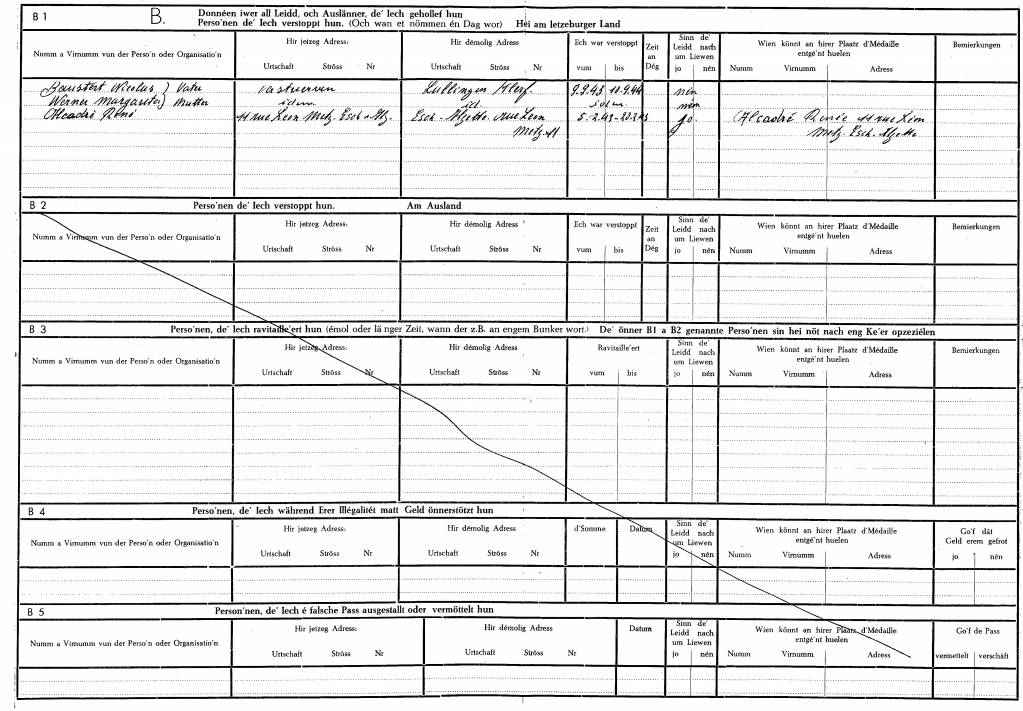 B 1 B. Donnéen iwer all Leidd, och Auslänner, de' Iech gehollef hun
Perso'nen de' Iech verstoppt hun. (Och wan et nömmen én Dag wor) Hei am letzeburger Land
Numm a Virnumm vun der Perso'n oder Organisatio'n Hir jetzeg Adress: Hir démolig Adress Ech war verstoppt Zeit an Dég Sinn de' Leidd nach um Liewen Wien könnt an hirer Plaatz d'Médaille entgë'nt huelen Bemierkungen
Urtschaft Ströss Nr Urtschaft Ströss Nr vum bis jo nén Numm Virnumm Adress
Nicolas ) Vater Lullingen 9.9.43 10-9.44 nén
Werner Margareta) Mutter idem id. idem nén
Alcadré René 11 rue Leon Metz Esch-Alz. Esch-Alzette rue Leon 5.2.43-20.2.43 jo Alcadré 11 rue Léon
Metz 11 Metz Esch-Alzette
B 2 Perso'nen de' Iech verstoppt hun. Am Ausland
Numm a Virnumm vun der Perso'n oder Organisatio'n Hir jetzeg Adress: Hir démolig Adress Ech war verstoppt Zeit an Dég Sinn de' Leidd nach um Liewen Wien könnt an hirer Plaatz d'Médaille entgë'nt huelen Bemierkungen
Urtschaft Ströss Nr Urtschaft Ströss Nr vum bis jo nén Numm Virnumm Adress
B 3 Perso'nen, de' Iech ravitaille'ert hun (émol oder länger Zeit, wann der z.B. an engem Bunker wort.) De' önner B1 a B2 genannte Perso'nen sin hei nöt nach eng Ke'er opzeziélen
Numm a Virnumm vun der Perso'n oder Organisatio'n Hir jetzeg Adress: Hir démolig Adress Ravitaille'ert Sinn de' Leidd nach um Liewen Wien könnt an hirer Plaatz d'Médaille entgë'nt huelen Bemierkungen
Urtschaft Ströss Nr Urtschaft Ströss Nr vum bis jo nén Numm Virnumm Adress
B 4 Perso'nen, de' Iech während Erer Illégalitét matt Geld önnerstötzt hun
Numm a Virnumm vun der Perso'n oder Organisatio'n Hir jetzeg Adress: Hir démolig Adress d'Somme Datum Sinn de' Leidd nach um Liewen Wien könnt an hirer Plaatz d'Médaille entgë'nt huelen Go'f dât Geld erem gefrot
Urtschaft Ströss Nr Urtschaft Ströss Nr jo nén Numm Virnumm Adress jo nén
B 5 Person'nen, de' Iech é falsche Pass ausgestallt oder vermöttelt hun
Numm a Virnumm vun der Perso'n oder Organisatio'n Hir jetzeg Adress: Hir démolig Adress Datum Sinn de' Leidd nach um Liewen Wien könnt an hirer Plaatz d'Médaille entgë'nt huelen Go'f de Pass
Urtschaft Ströss Nr Urtschaft Ströss Nr jo nén Numm Virnumm Adress vermettelt verschâft